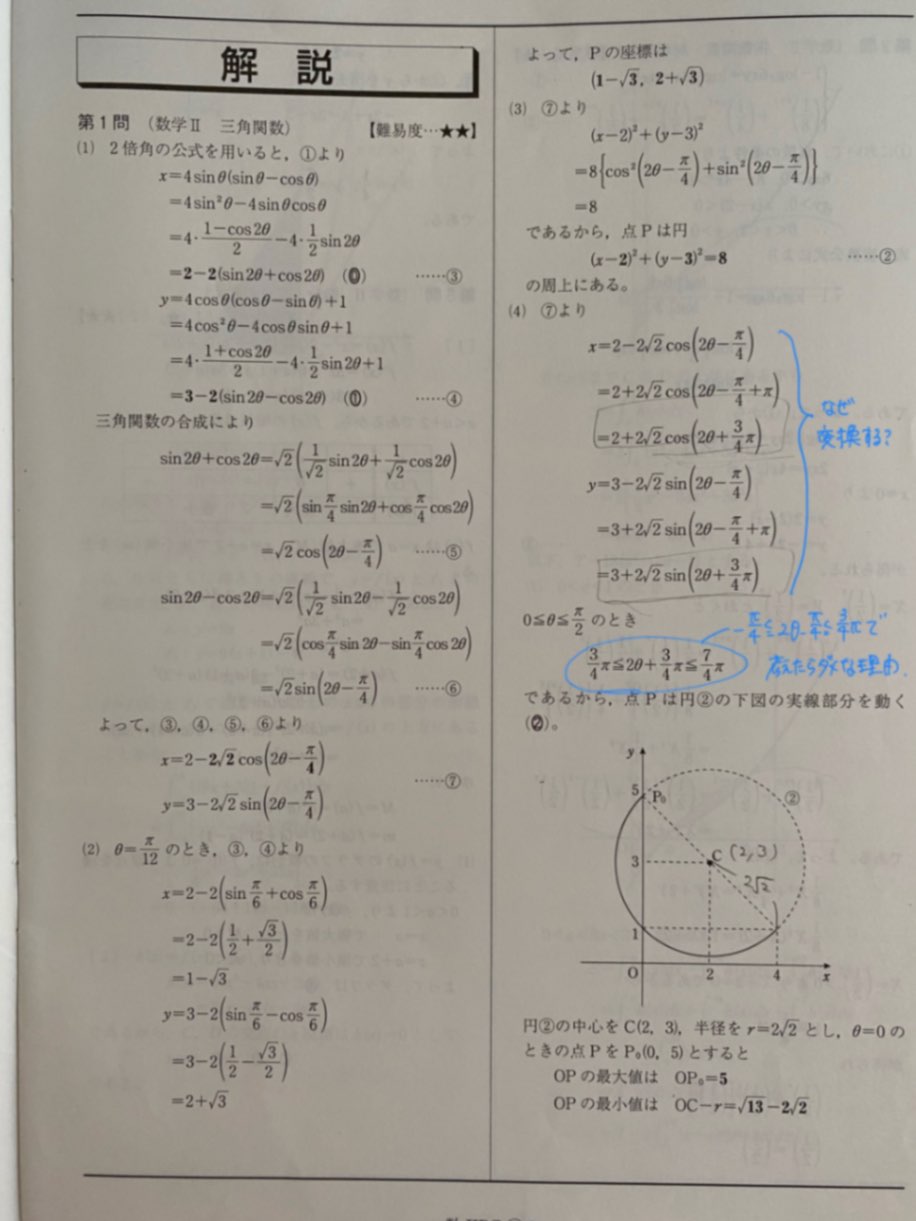 解 説
第1問 (数学Ⅱ 三角関数) 【難易度…★★】
(1) 2倍角の公式を用いると,①より
x=4sinθ(sinθ−cosθ)
=4sin²θ−4sinθcosθ
=4・(1−cos2θ)/2−4・1/2 sin2θ
=2−2(sin2θ+cos2θ) (⓪) ……③
y=4cosθ(cosθ−sinθ)+1
=4cos²θ−4cosθsinθ+1
=4・(1+cos2θ)/2−4・1/2 sin2θ+1
=3−2(sin2θ−cos2θ) (①) ……④
三角関数の合成により
sin2θ+cos2θ=√2(1/√2 sin2θ+1/√2 cos2θ)
=√2(sin π/4 sin2θ+cos π/4 cos2θ)
=√2cos(2θ−π/4) ……⑤
sin2θ−cos2θ=√2(1/√2 sin2θ−1/√2 cos2θ)
=√2(cos π/4 sin2θ−sin π/4 cos2θ)
=√2sin(2θ−π/4) ……⑥
よって,③,④,⑤,⑥より
x=2−2√2cos(2θ−π/4)
……⑦
y=3−2√2sin(2θ−π/4)
(2) θ=π/12 のとき,③,④より
x=2−2(sin π/6+cos π/6)
=2−2(1/2+√3/2)
=1−√3
y=3−2(sin π/6−cos π/6)
=3−2(1/2−√3/2)
=2+√3
よって,Pの座標は
(1−√3, 2+√3)
(3) ⑦より
(x−2)²+(y−3)²
=8{cos²(2θ−π/4)+sin²(2θ−π/4)}
=8
であるから,点Pは円
(x−2)²+(y−3)²=8 ……②
の周上にある。
(4) ⑦より
x=2−2√2cos(2θ−π/4)
=2+2√2cos(2θ−π/4+π)
=2+2√2cos(2θ+3/4π)
y=3−2√2sin(2θ−π/4)
=3+2√2sin(2θ−π/4+π)
=3+2√2sin(2θ+3/4π)
なぜ
変換する?
0≦θ≦π/2 のとき
−π/4≦2θ−π/4≦3/4πで
3/4π≦2θ+3/4π≦7/4π
考えたらダメな理由.
であるから,点Pは円②の下図の実線部分を動く
(②)。
y
5
P₀
②
3
C (2,3)
2√2
1
O 2 4 x
円②の中心をC(2, 3),半径をr=2√2とし,θ=0の
ときの点PをP₀(0, 5)とすると
OPの最大値は OP₀=5
OPの最小値は OC−r=√13−2√2